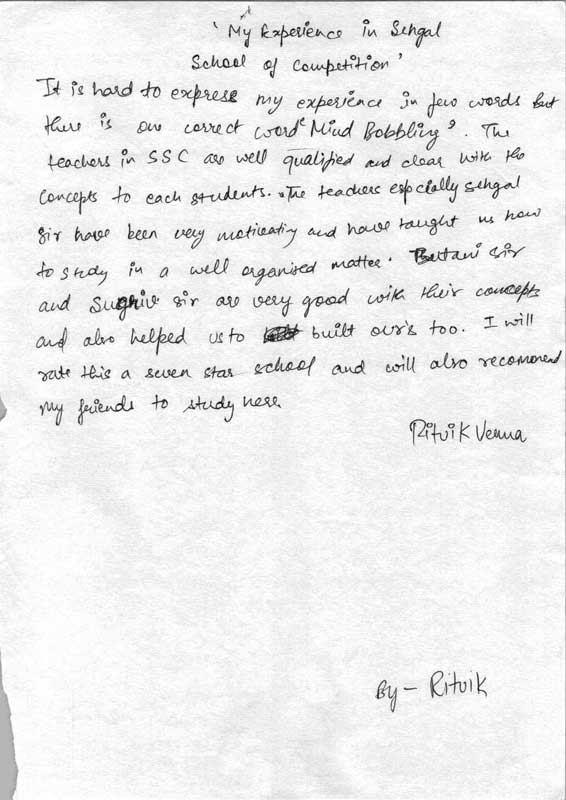 'My Experience in Sehgal
School of Competition'
It is hard to express my experience in few words but
there is one correct word 'Mind Bobbling'. The
teachers in SSC are well qualified and clear with the
concepts to each students. The teachers especially sehgal
sir have been very motivating and have taught us how
to study in a well organised matter. Butani sir
and Sugriv sir are very good with their concepts
and also helped us to built our's too. I will
rate this a seven star school and will also recomend
my friends to study here.
Ritvik Verma
By - Ritvik